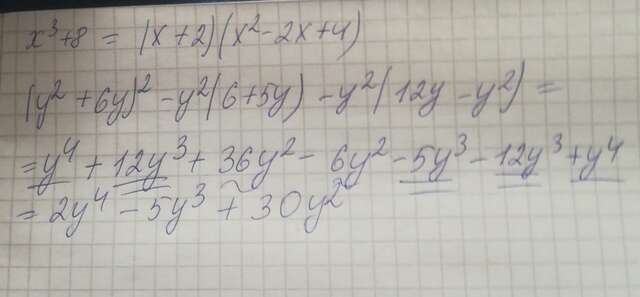 x³+8 = (x+2)(x²-2x+4)
(y² + 6y)² - y²(6+5y) - y²(12y - y²) =
= y⁴ + 12y³ + 36y² - 6y² - 5y³ - 12y³ + y⁴
= 2y⁴ - 5y³ + 30y²